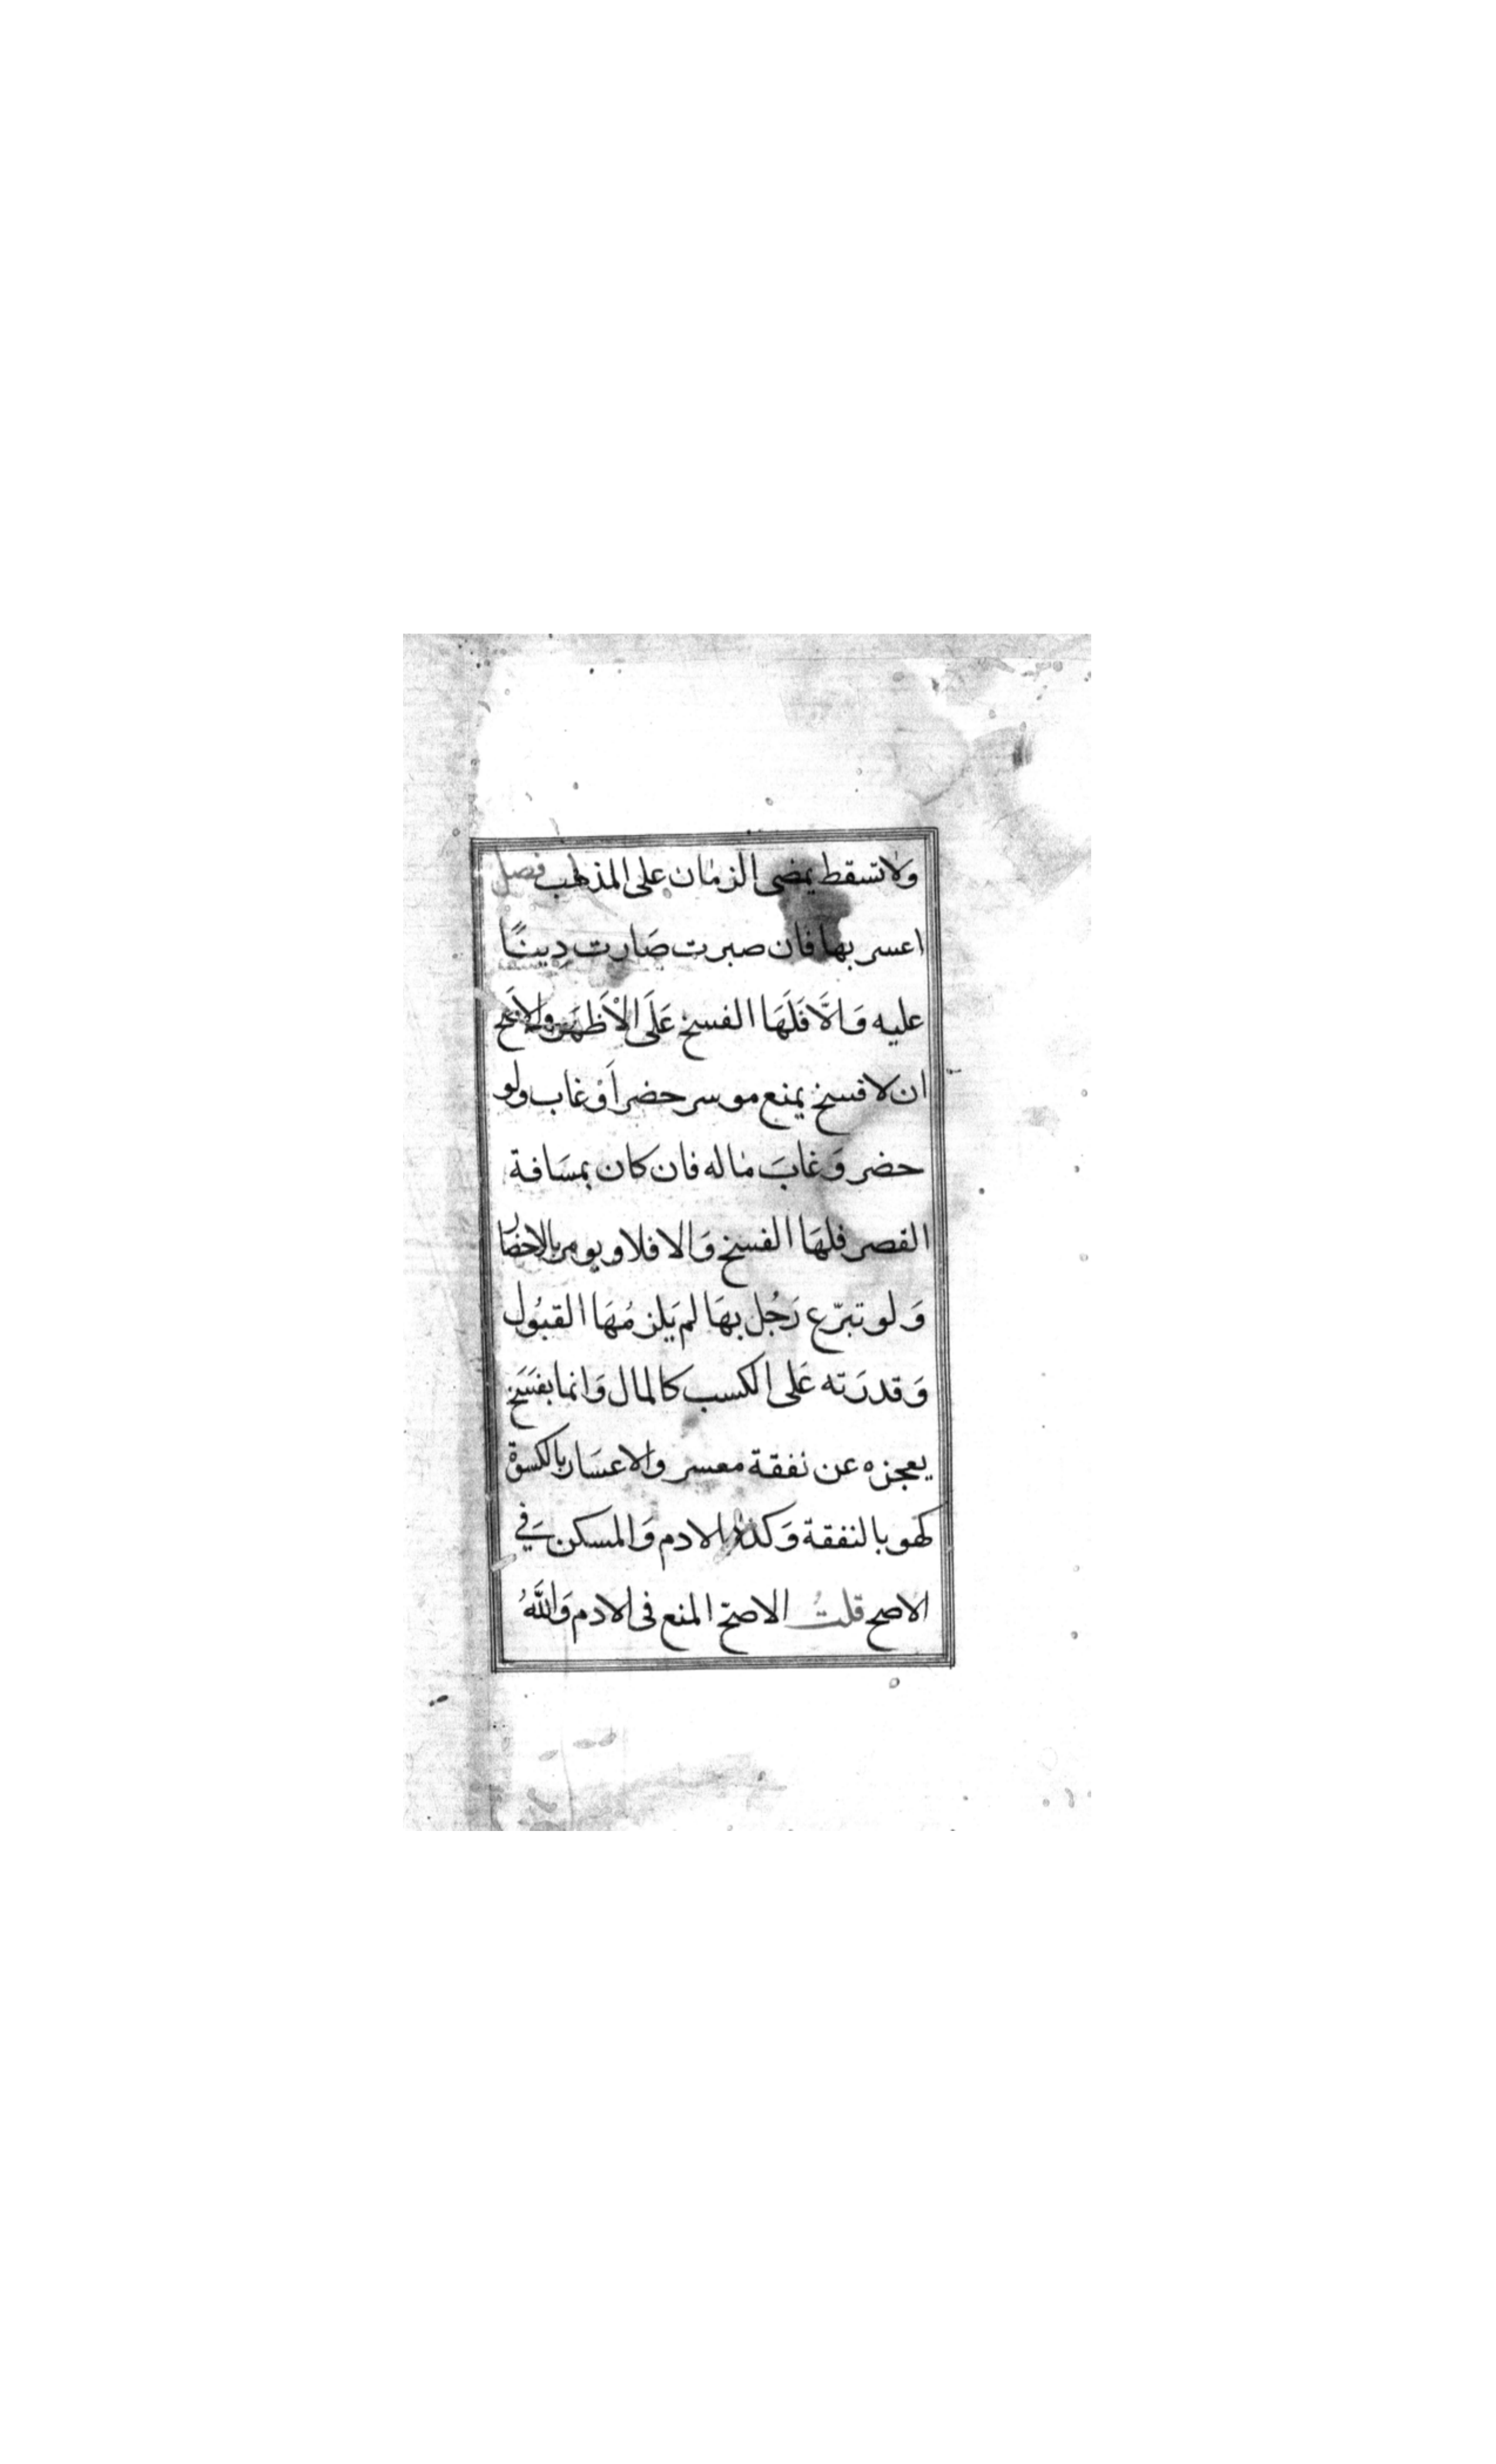 ولا تسقط بمضى الزمان على المذهب فصل
اعسر بها فان صبرت صَارت دينًا
عليه وَالَّا فَلَهَا الفسخ عَلَى الْأَظهَر والاصح
ان لا فسخ بمنع موسر حضر اَوْ غاب ولو
حضر وَغابَ ماله فان كان بمسَافة
القصر فلهَا الفسخ وَالا فلا ويومر بالاحضار
وَلو تبرّع رَجُل بهَا لم يَلزمُهَا القبُول
وَقدرَته عَلى الكسب كالمال وَانما يفسَخ
بعجزه عن نفقة معسر والاعسَار بالكسوة
كهو بالنفقة وَكذا الادم وَالمسكن في
الاصح قلتُ الاصحّ المنع فى الادم وَاللَّهُ